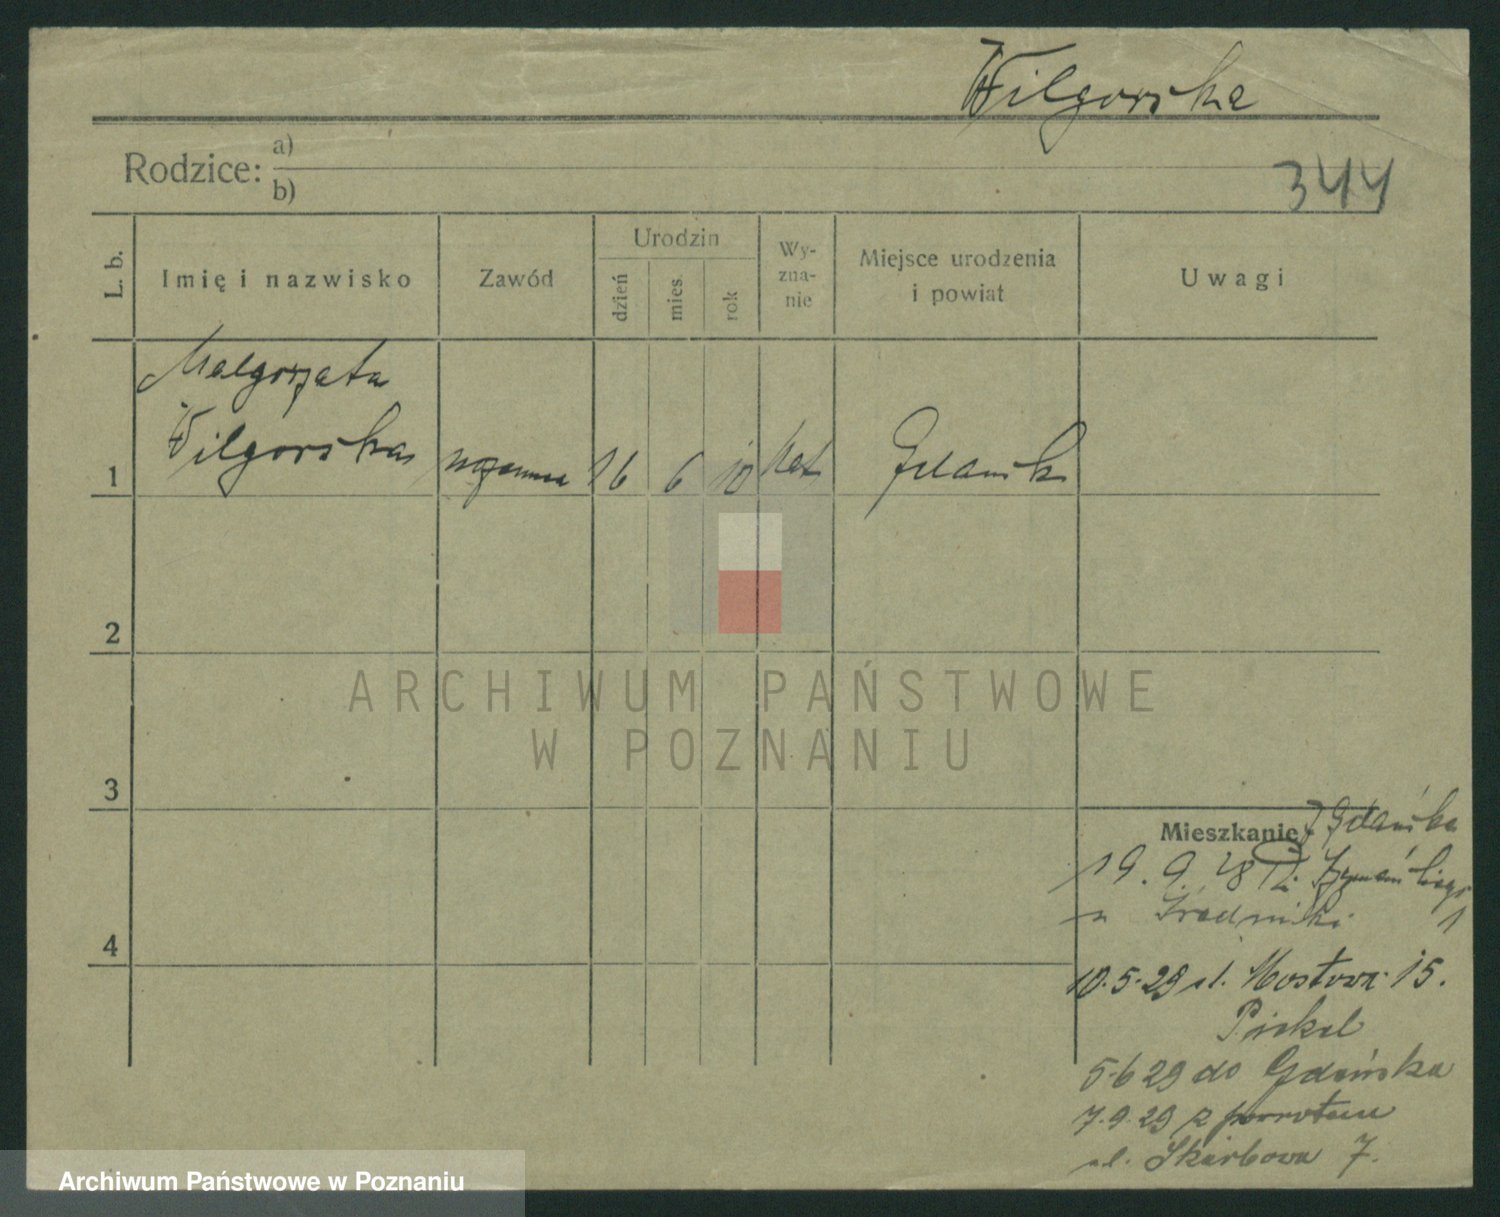 Wilgorska
Rodzice: a)
b)
344
L. b.
Imię i nazwisko
Zawód
Urodzin
dzień
mies.
rok
Wy-
zna-
nie
Miejsce urodzenia
i powiat
Uwagi
1
Małgorzata
Wilgorska
16
6
10
kat
Gdańsk
2
3
4
ARCHIWUM PAŃSTWOWE
W POZNANIU
Mieszkanie z Gdańska
19. 9. 28
1
10.5.29 ul. Mostowa 15.
5.6 29 do Gdańska
7.9.29 z powrotem
ul. Skarbowa 7.
Archiwum Państwowe w Poznaniu